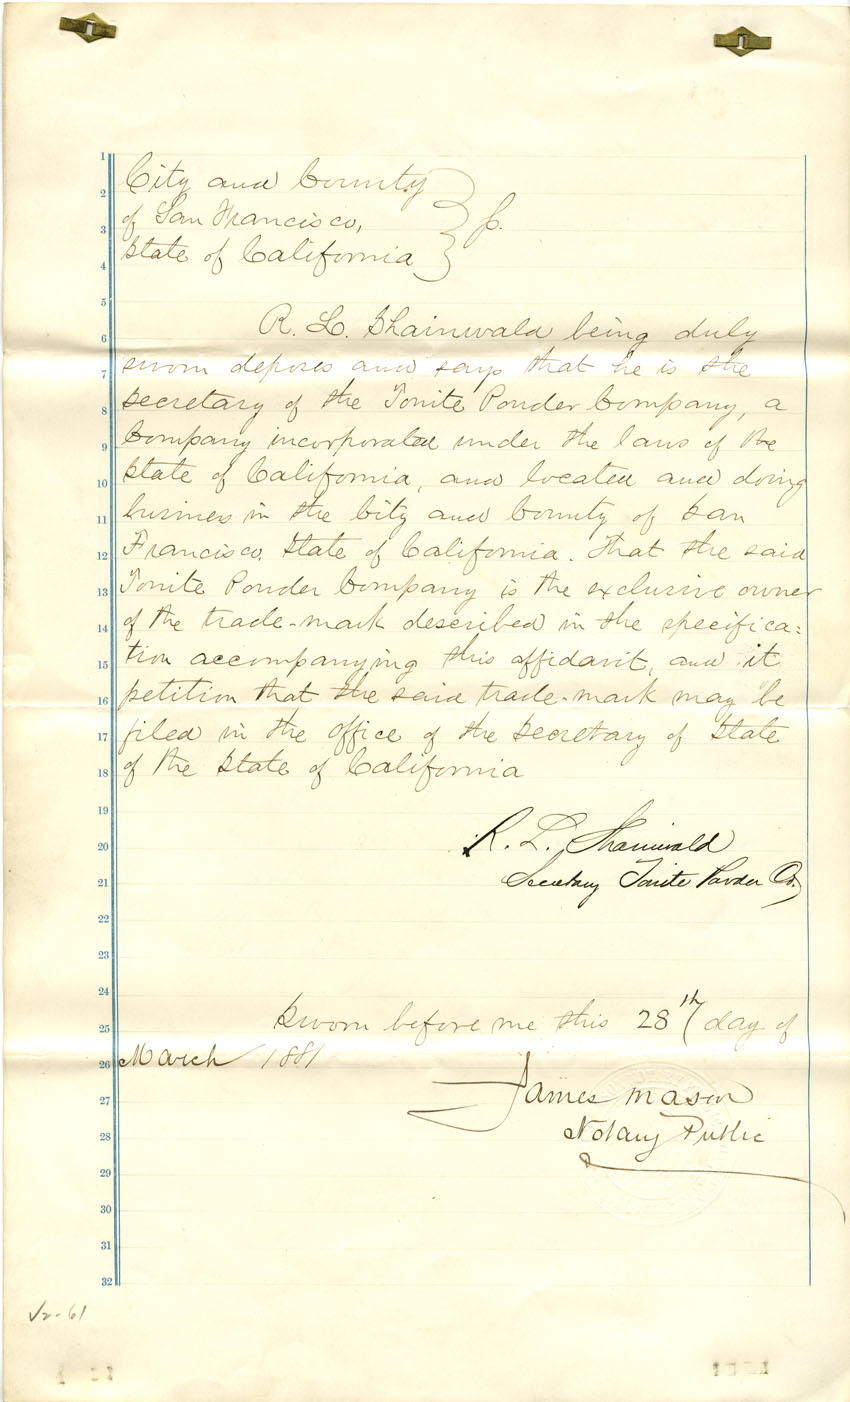 City and County
of San Francisco, } ss.
State of California
R. L. Shainwald being duly
sworn deposes and says that he is the
Secretary of the Tonite Powder Company, a
Company incorporated under the laws of the
State of California, and located and doing
business in the City and County of San
Francisco, State of California. That the said
Tonite Powder Company is the exclusive owner
of the trade-mark described in the specifica=
tion accompanying this affidavit, and it
petition that the said trade-mark may be
filed in the office of the Secretary of State
of the State of California
R. L. Shainwald
Secretary Tonite Powder Co.
Sworn before me this 28th day of
March 1881
James Mason
Notary Public
1
2
3
4
5
6
7
8
9
10
11
12
13
14
15
16
17
18
19
20
21
22
23
24
25
26
27
28
29
30
31
32